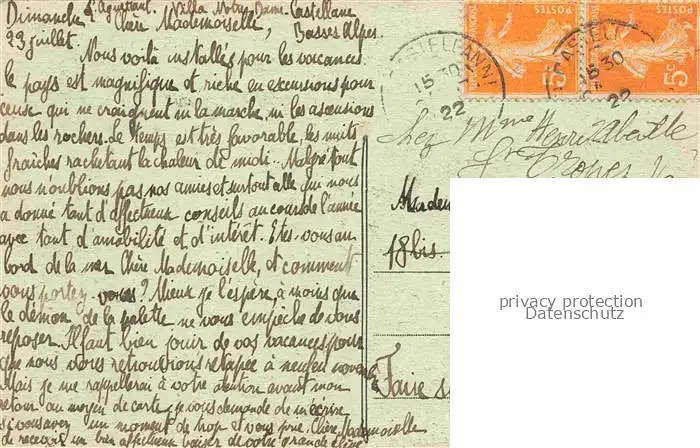 Dimanche L. Aguérant. Villa Notre Dame. Castellane
23 juillet. Chère Mademoiselle, Basses Alpes.
Nous voilà installés pour les vacances
le pays est magnifique et riche en excursions pour
ceux qui ne craignent ni la marche, ni les ascensions
dans les rochers. Le temps est très favorable, les nuits
fraîches rachetant la chaleur du midi. Malgré tout
nous n'oublions pas nos amies et surtout celle qui nous
a donné tant d'affectueux conseils au cours de l'année
avec tant d'amabilité et d'intérêt. Etes-vous au
bord de la mer Chère Mademoiselle, et comment
vous portez-vous? Mieux je l'espère, à moins que
le démon de la palette ne vous empêche de vous
reposer. Il faut bien jouir de vos vacances pour
que nous vous retrouvions retapée à neuf en
Mais je me rappellerai à votre attention avant mon
retour au moyen de carte, je vous demande de m'écrire
si vous avez un moment de trop et vous prie, Chère Mademoiselle
de recevoir un bien affectueux baiser de votre grande élève
CASTELLANE
15 30
22
CASTELL
15 30
22
5c
5c
Chez Mme Henri Abeille
St Tropez
Madem
18 bis
Faire s
privacy protection
Datenschutz